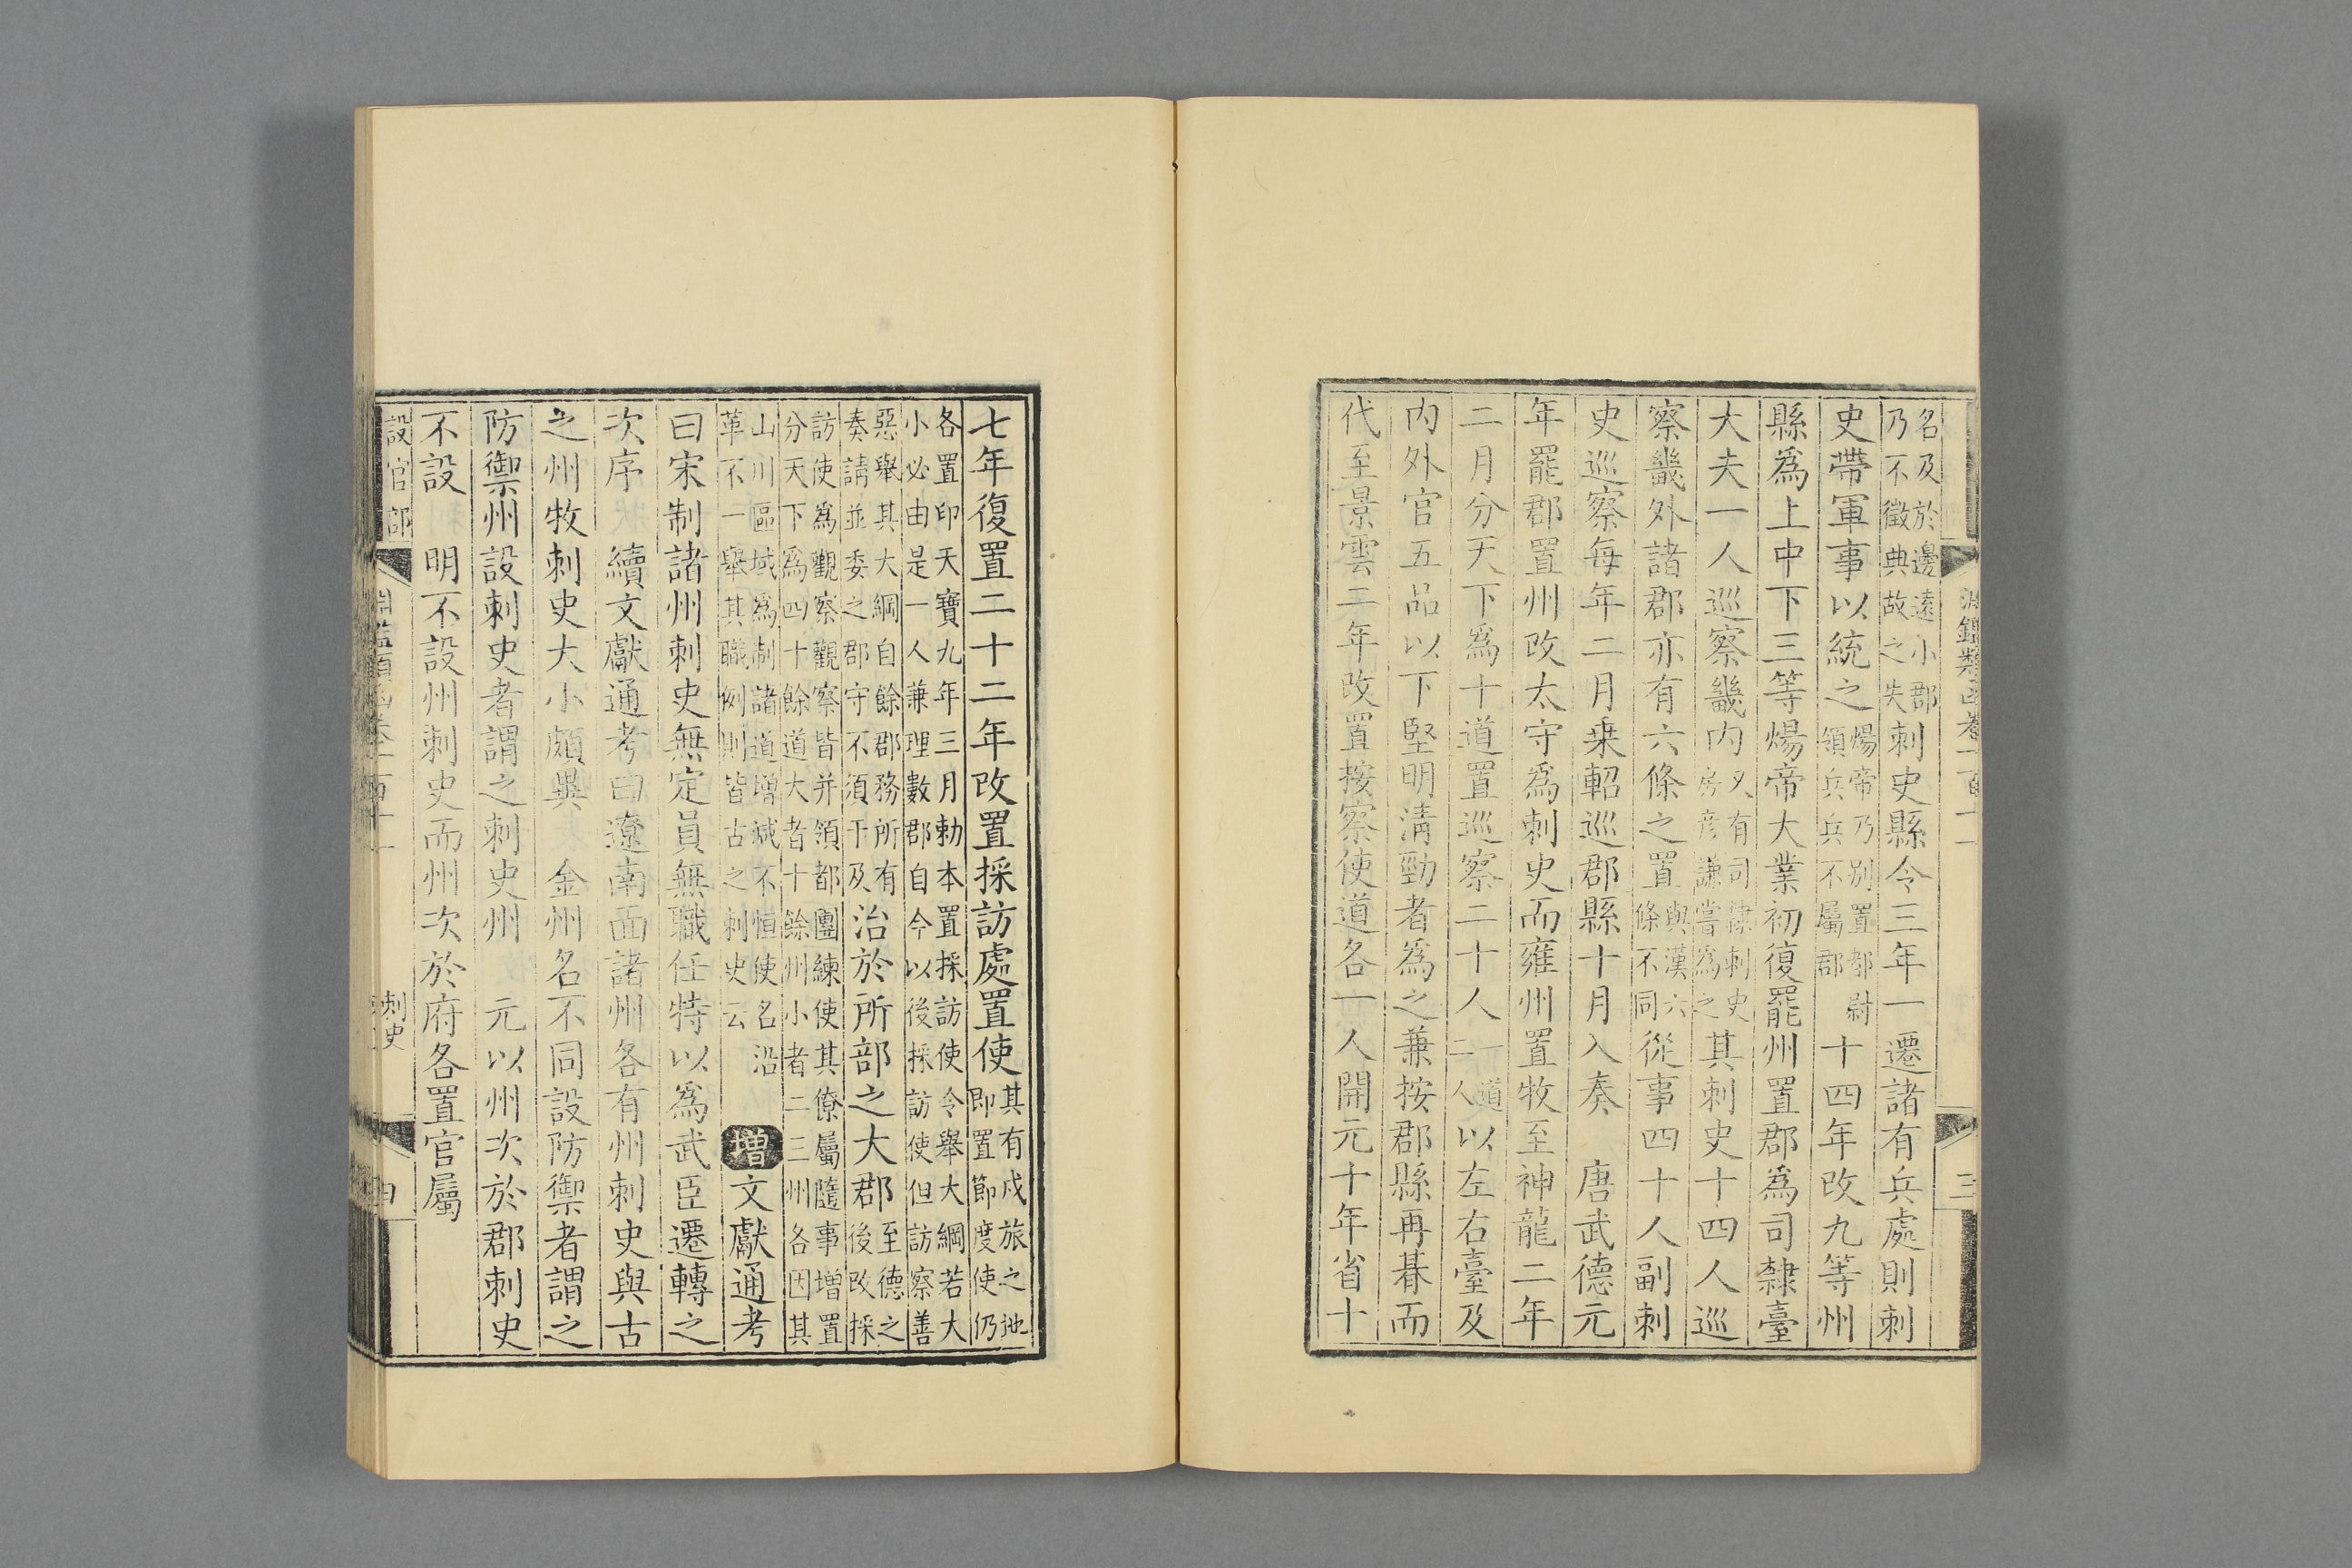 名及於邊遠小郡
乃不徵典故之失
刺史縣令三年一遷諸有兵處則刺
史帶軍事以統之
煬帝乃別置都尉
領兵兵不屬郡
十四年改九等州
縣爲上中下三等煬帝大業初復罷州置郡爲司隸臺
大夫一人巡察畿內
又有司隸刺史
房彦謙嘗爲之
其刺史十四人巡
察畿外諸郡亦有六條之置
與漢六
條不同
從事四十人副刺
史巡察每年二月乗軺巡郡縣十月入奏　唐武德元
年罷郡置州改太守爲刺史而雍州置牧至神龍二年
二月分天下爲十道置巡察二十人
一道
二人
以左右臺及
內外官五品以下堅明淸勁者爲之兼按郡縣再朞而
代至景雲二年改置按察使道各一人開元十年省十
三
七年復置二十二年改置採訪處置使
其有戍旅之地
即置節度使仍
各置印天寶九年三月勅本置採訪使令舉大綱若大
小必由是一人兼理數郡自今以後採訪使但訪察善
惡舉其大綱自餘郡務所有
奏請並委之郡守不須干及
治於所部之大郡
至德之
後改採
訪使爲觀察觀察皆并領都團練使其僚屬隨事增置
分天下爲四十餘道大者十餘州小者二三州各因其
山川區域爲制諸道增減不恒使名沿
革不一舉其職例則皆古之刺史云
增
文獻通考
曰宋制諸州刺史無定員無職任特以爲武臣遷轉之
次序　續文獻通考曰遼南面諸州各有州刺史與古
之州牧刺史大小頗異　金州名不同設防禦者謂之
防禦州設刺史者謂之刺史州　元以州次於郡刺史
不設　明不設州刺史而州次於府各置官屬
設官部
刺史